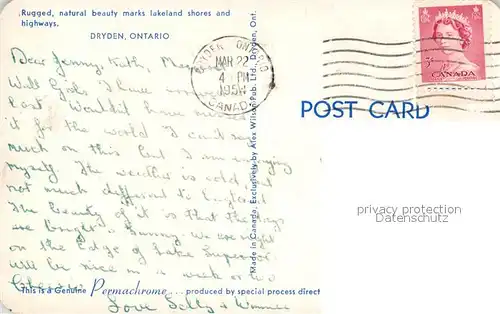 Rugged, natural beauty marks lakeland shores and
highways.
DRYDEN, ONTARIO
Dear Jenny, Kath,
Well Girls I have
last. Wouldn't have
it for the world I can't say
much on this but I am enjoying
myself. The weather is cold but
not much different to England
The beauty of it is that the days
are Sunny. We are right
on the Edge of Lake Superior
will be nice in a week or two
Cheerio
Love Selly &
DRYDEN ONT
MAR 22
4 PM
195
CANADA
Made in Canada, Exclusively by Alex Wilson Pub. Ltd., Dryden, Ont.
POST CARD
3¢
CANADA
privacy protection
datenschutz
This is a Genuine Permachrome ... produced by special process direct